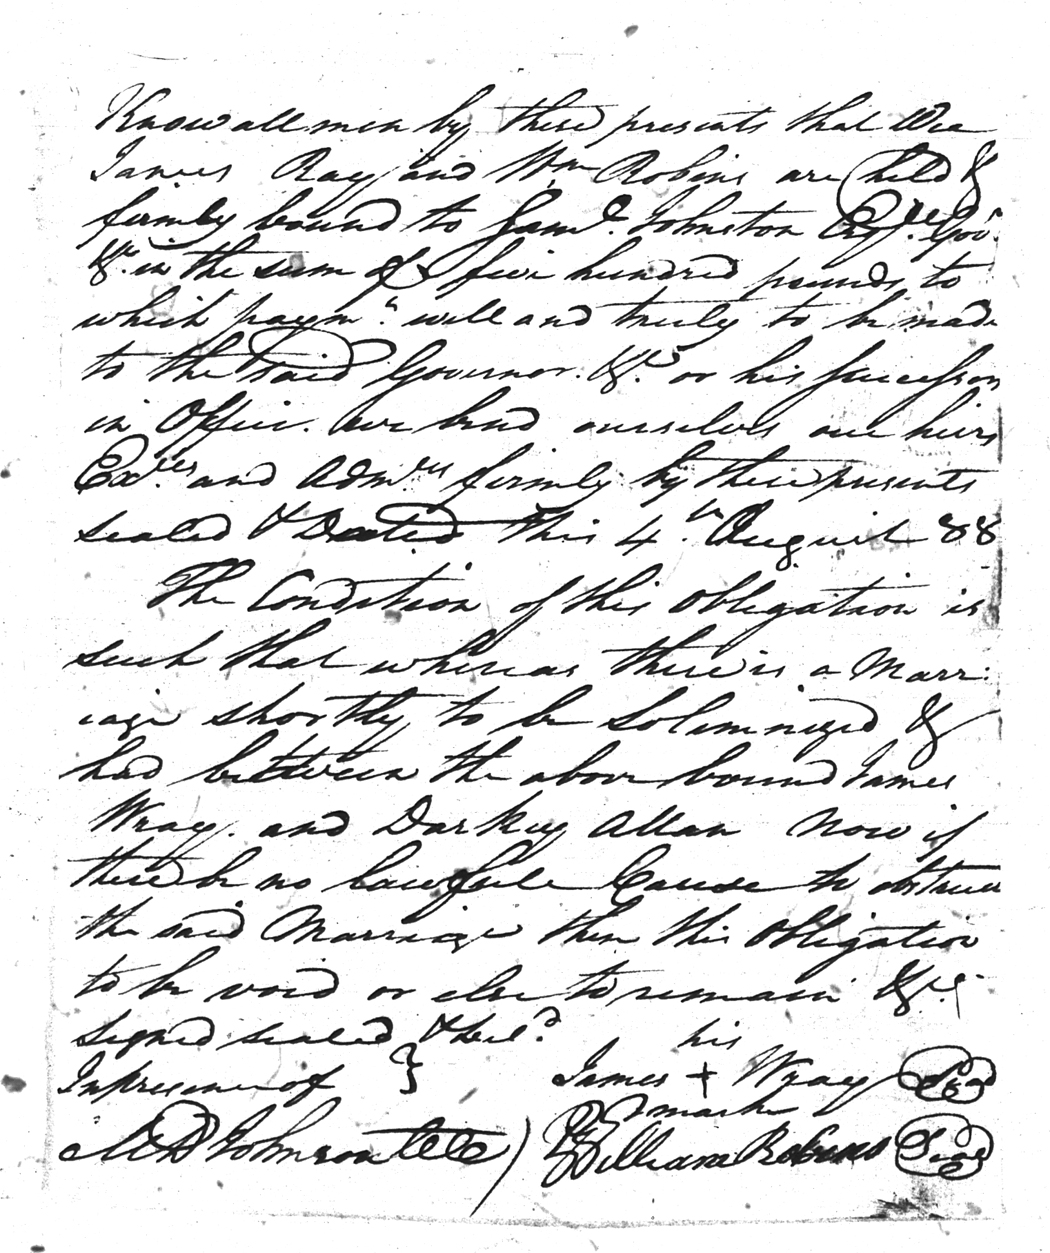 Know all men by these presents that Wee
James Ray and Wm Robins are held &
firmly bound to Saml. Johnston Esqr. Govr.
&c. in the sum of five hundred pounds to
which paymt. well and truly to be made
to the said Governor. &c. or his Successors
in Office. we bind ourselves our heirs
Exres. and Admres firmly by these presents
sealed & Dated This 4th. August 88
The Condition of this obligation is
such that whereas there is a Marr:
iage shortly to be Solemnized &
had between the above bound James
Wray. and Darkey Allan Now if
there be no Lawfule Cause to obstruct
the said Marriage then this obligation
to be void or else to remain &c.
signed sealed & deld.
In presence of }
his
James + Wray Seal
mark
William Robins Seal
A R Johnson